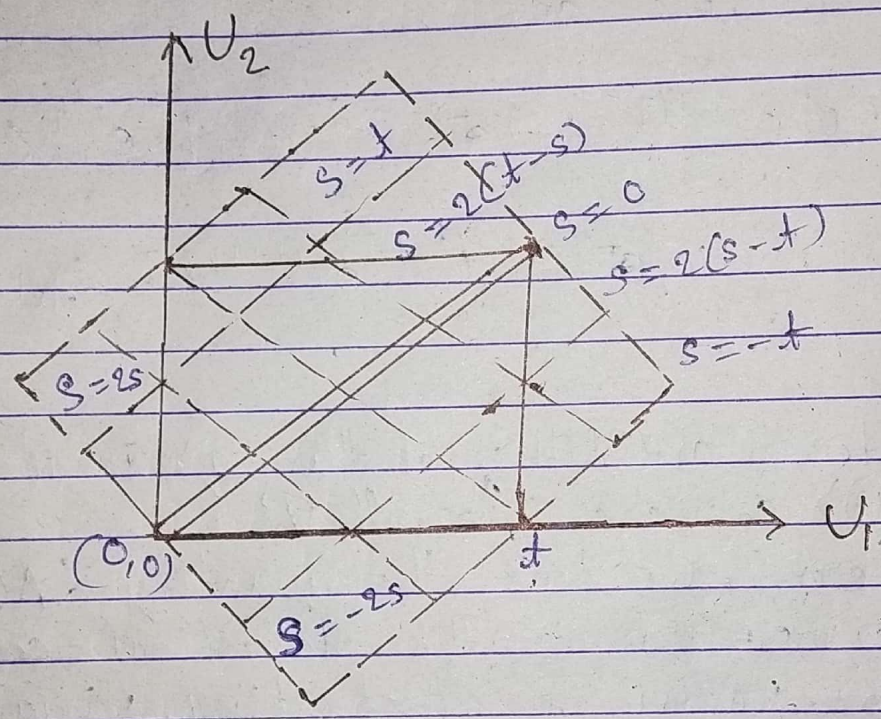 U₂
S=t
S=2(t-s)
S=0
S=2(s-t)
S=-t
S=2s
(0,0)
t
U₁
S=-2s